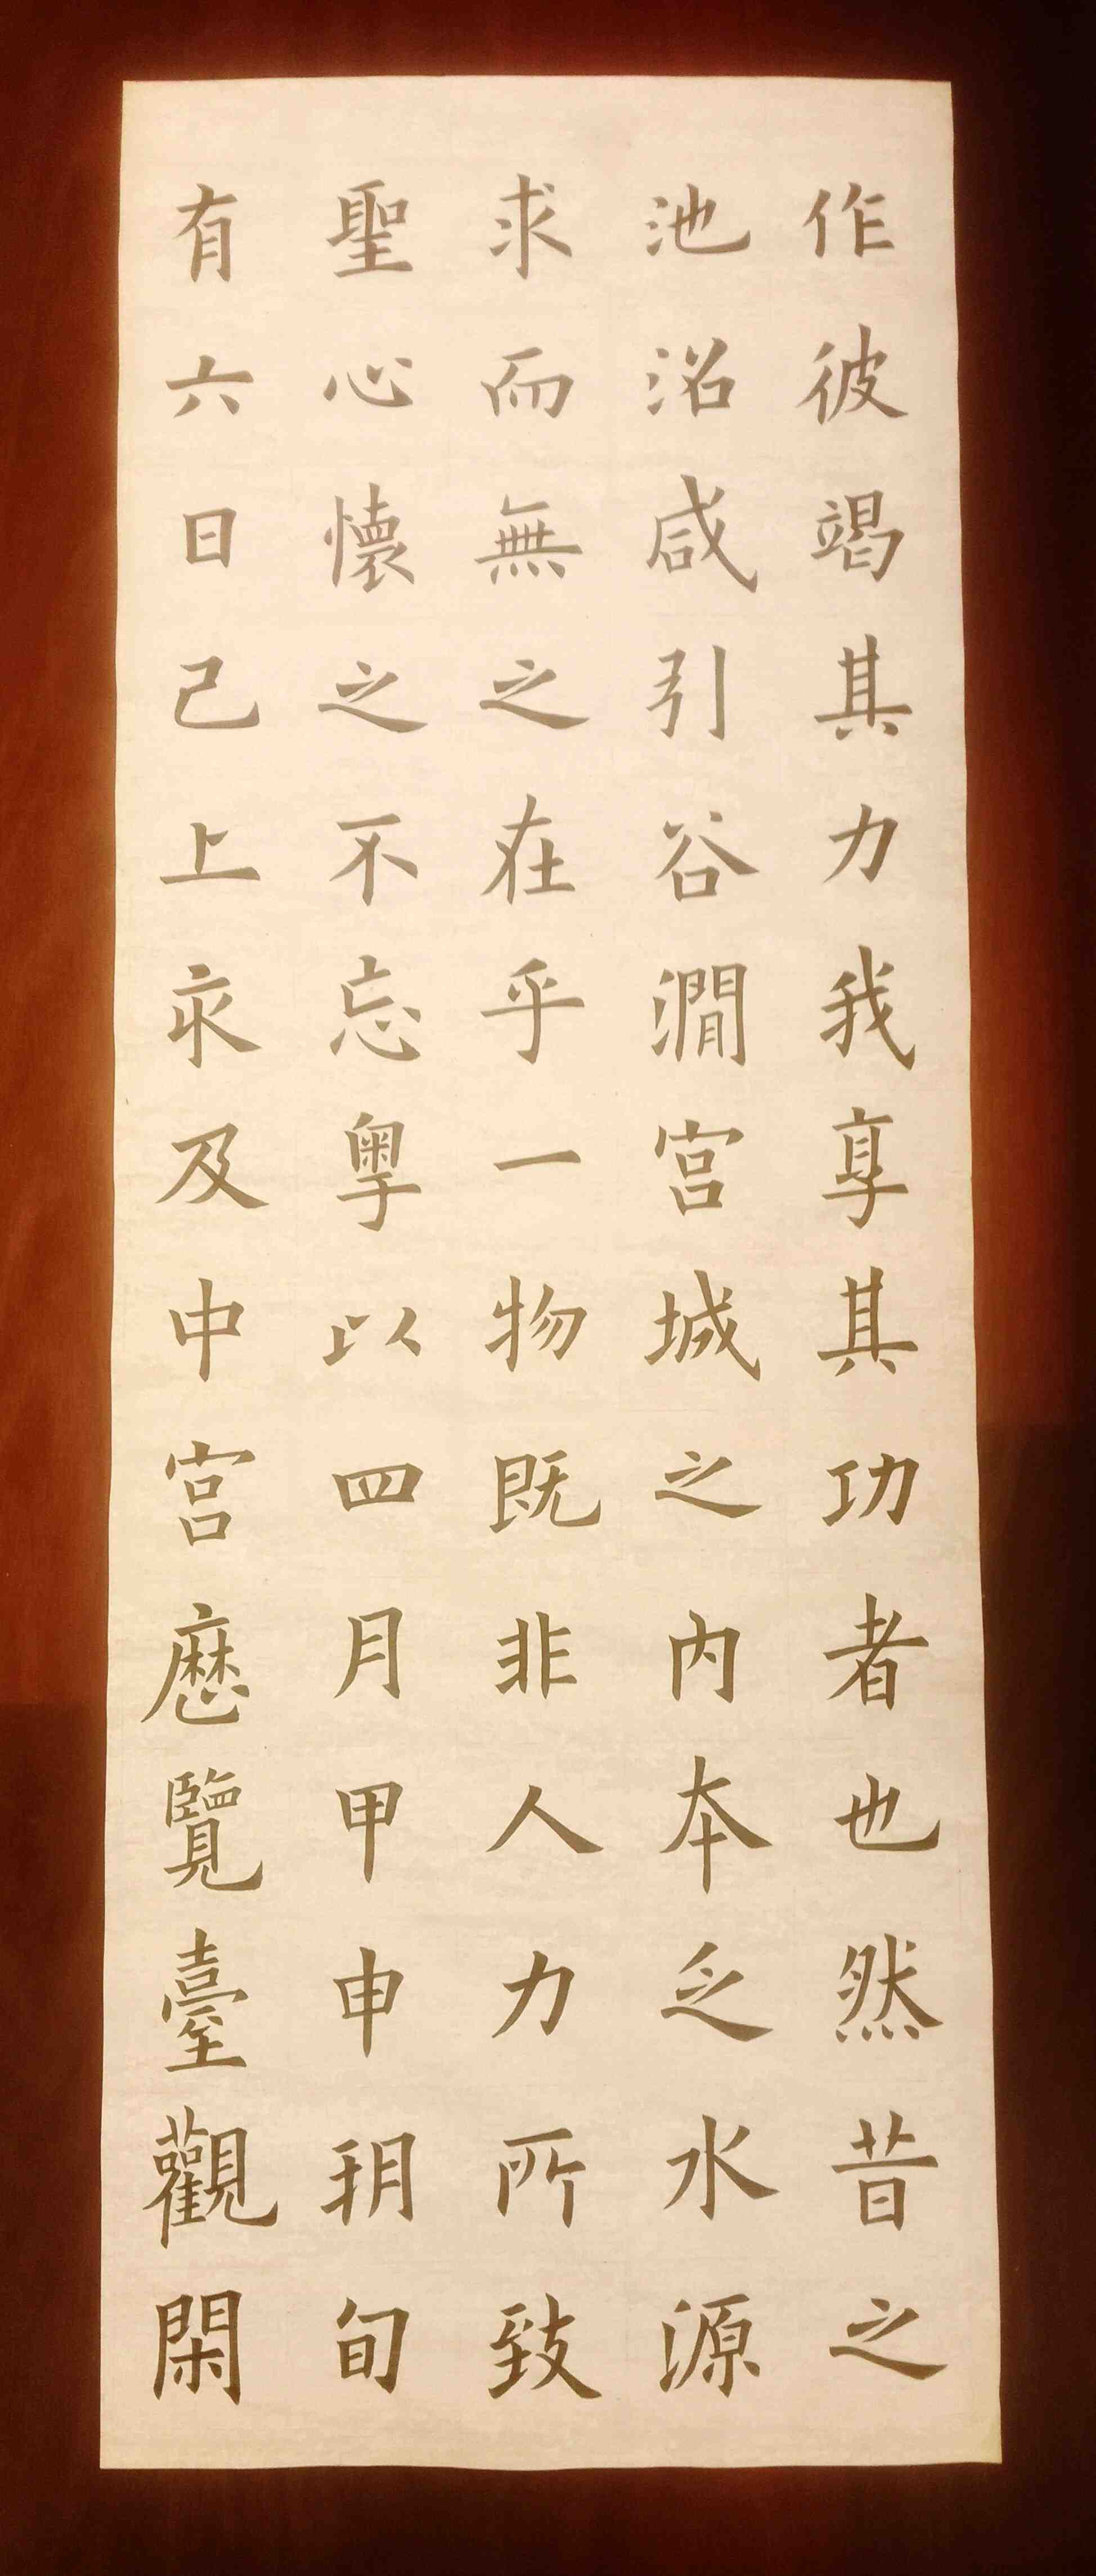 作彼竭其力我享其功者也然昔之
池沼咸引谷澗宮城之内本乏水源
求而無之在乎一物既非人力所致
聖心懷之不忘粤以四月甲申朔旬
有六日己上求及中宮歴覽臺觀閑